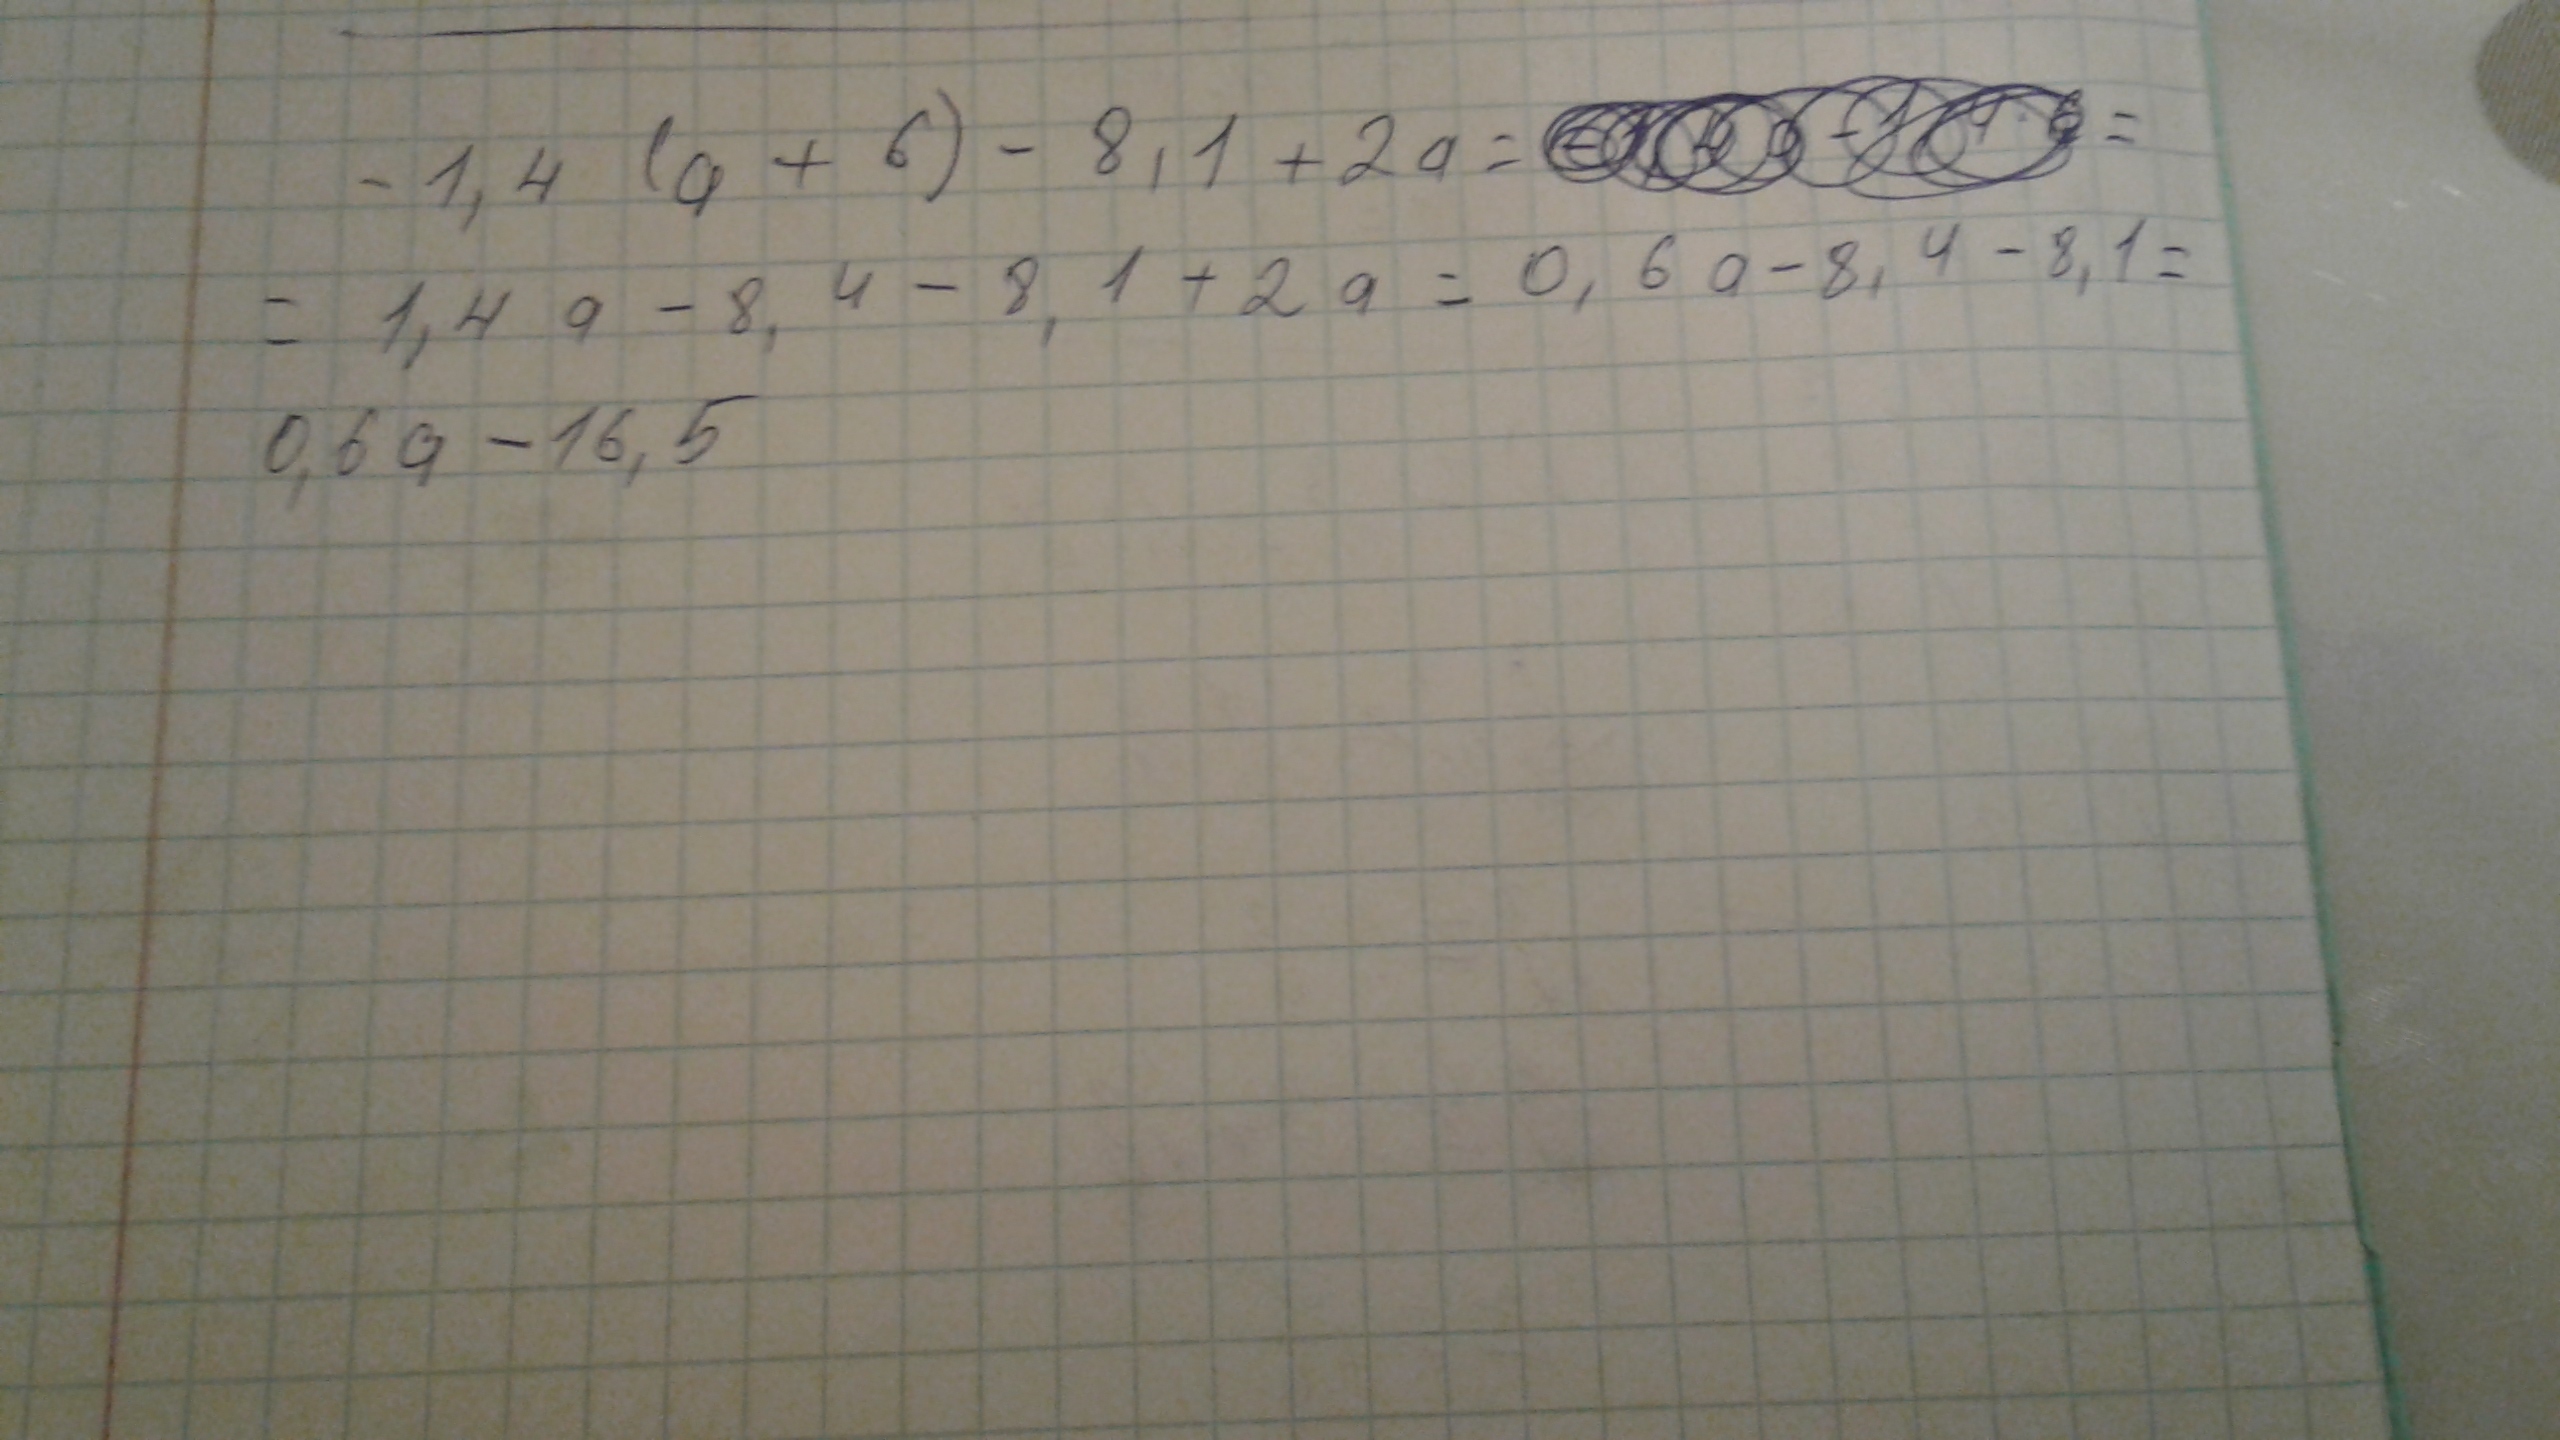 -1,4 (a + 6) - 8,1 + 2a = =
= 1,4 a - 8,4 - 8,1 + 2a = 0,6a - 8,4 - 8,1 =
0,6a - 16,5